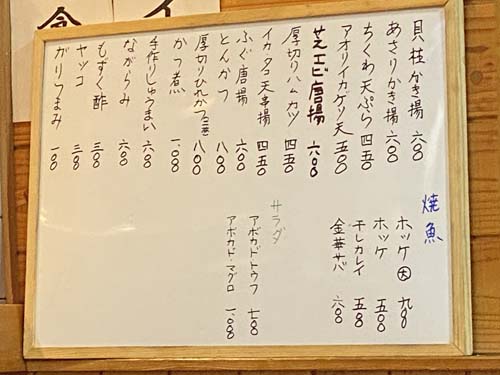 貝柱かき揚 六〇〇
あさりかき揚 六〇〇
ちくわ天ぷら 四五〇
アオリイカゲソ天 五〇〇
芝エビ唐揚 六〇〇
厚切りハムカツ 四五〇
イカタコ天串揚 四五〇
ふぐ唐揚 六〇〇
とんかつ 八〇〇
厚切りひれかつ 八〇〇
かつ煮 一、〇〇〇
手作りしゅうまい 六〇〇
ながらみ 六〇〇
もずく酢 三〇〇
ヤッコ 三〇〇
がりつまみ 一〇〇
焼魚
ホッケ 大 九〇〇
ホッケ 五〇〇
干しカレイ 五〇〇
金華サバ 六〇〇
サラダ
アボカドトウフ 七〇〇
アボカド・マグロ 一、〇〇〇